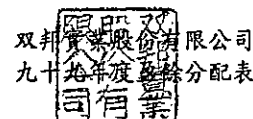 双邦實業股份有限公司
九十九年度盈餘分配表